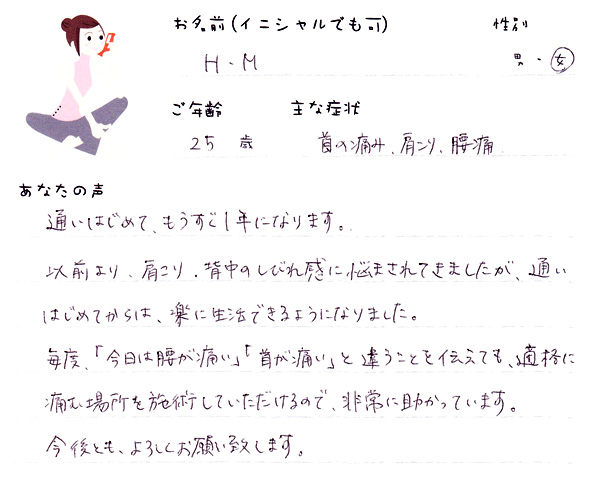 お名前(イニシャルでも可) 性別
H・M 男・女
ご年齢 主な症状
25 歳 首の痛み、肩こり、腰痛
あなたの声
通いはじめて、もうすぐ1年になります。
以前より、肩こり、背中のしびれ感に悩まされてきましたが、通い
はじめてからは、楽に生活できるようになりました。
毎度、「今日は腰が痛い」「首が痛い」と違うことを伝えても、適格に
痛む場所を施術していただけるので、非常に助かっています。
今後とも、よろしくお願い致します。